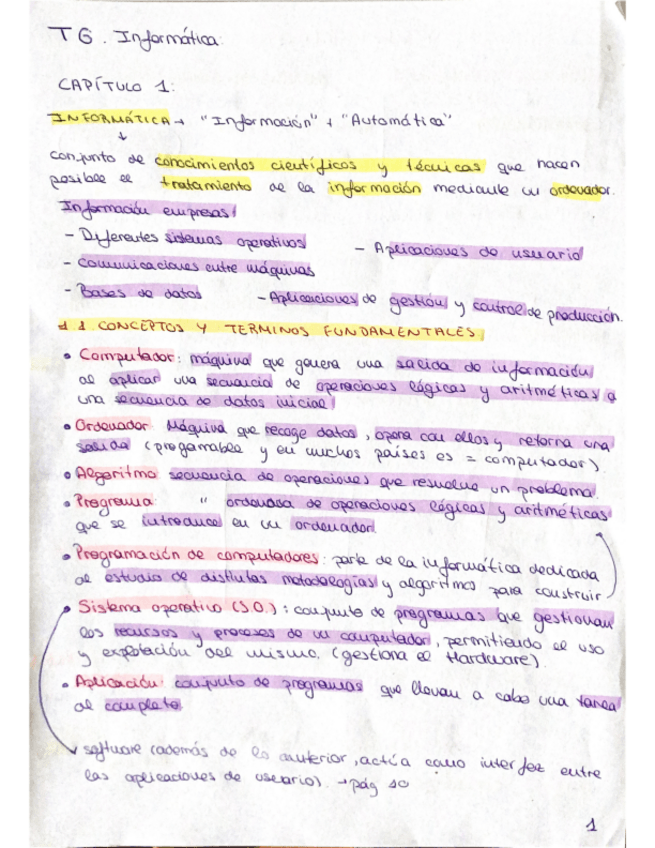 T6. Informática.
CAPÍTULO 1:
INFORMÁTICA → "Información" + "Automática"
↓
conjunto de conocimientos científicos y técnicas que hacen
posible el tratamiento de la información mediante un ordenador.
Información empresas:
- Diferentes sistemas operativos - Aplicaciones de usuario
- Comunicaciones entre máquinas
- Bases de datos - Aplicaciones de gestión y control de producción.
1.1. CONCEPTOS Y TERMINOS FUNDAMENTALES.
• Computador: máquina que genera una salida de información
al aplicar una secuencia de operaciones lógicas y aritméticas a
una secuencia de datos inicial.
• Ordenador: Máquina que recoge datos, opera con ellos y retorna una
salida (programable y en muchos países es = computador).
• Algoritmo: secuencia de operaciones que resuelve un problema.
• Programa: " ordenada de operaciones lógicas y aritméticas
que se introduce en un ordenador.
• Programación de computadores: parte de la informática dedicada
al estudio de distintas metodologías y algoritmos para construir
• Sistema operativo (S.O.): conjunto de programas que gestionan
los recursos y procesos de un computador, permitiendo el uso
y explotación del mismo. (gestiona el Hardware).
• Aplicación: conjunto de programas que llevan a cabo una tarea
al completo.
software (además de lo anterior, actúa como interfez entre
las aplicaciones de usuario). → pág 10
1